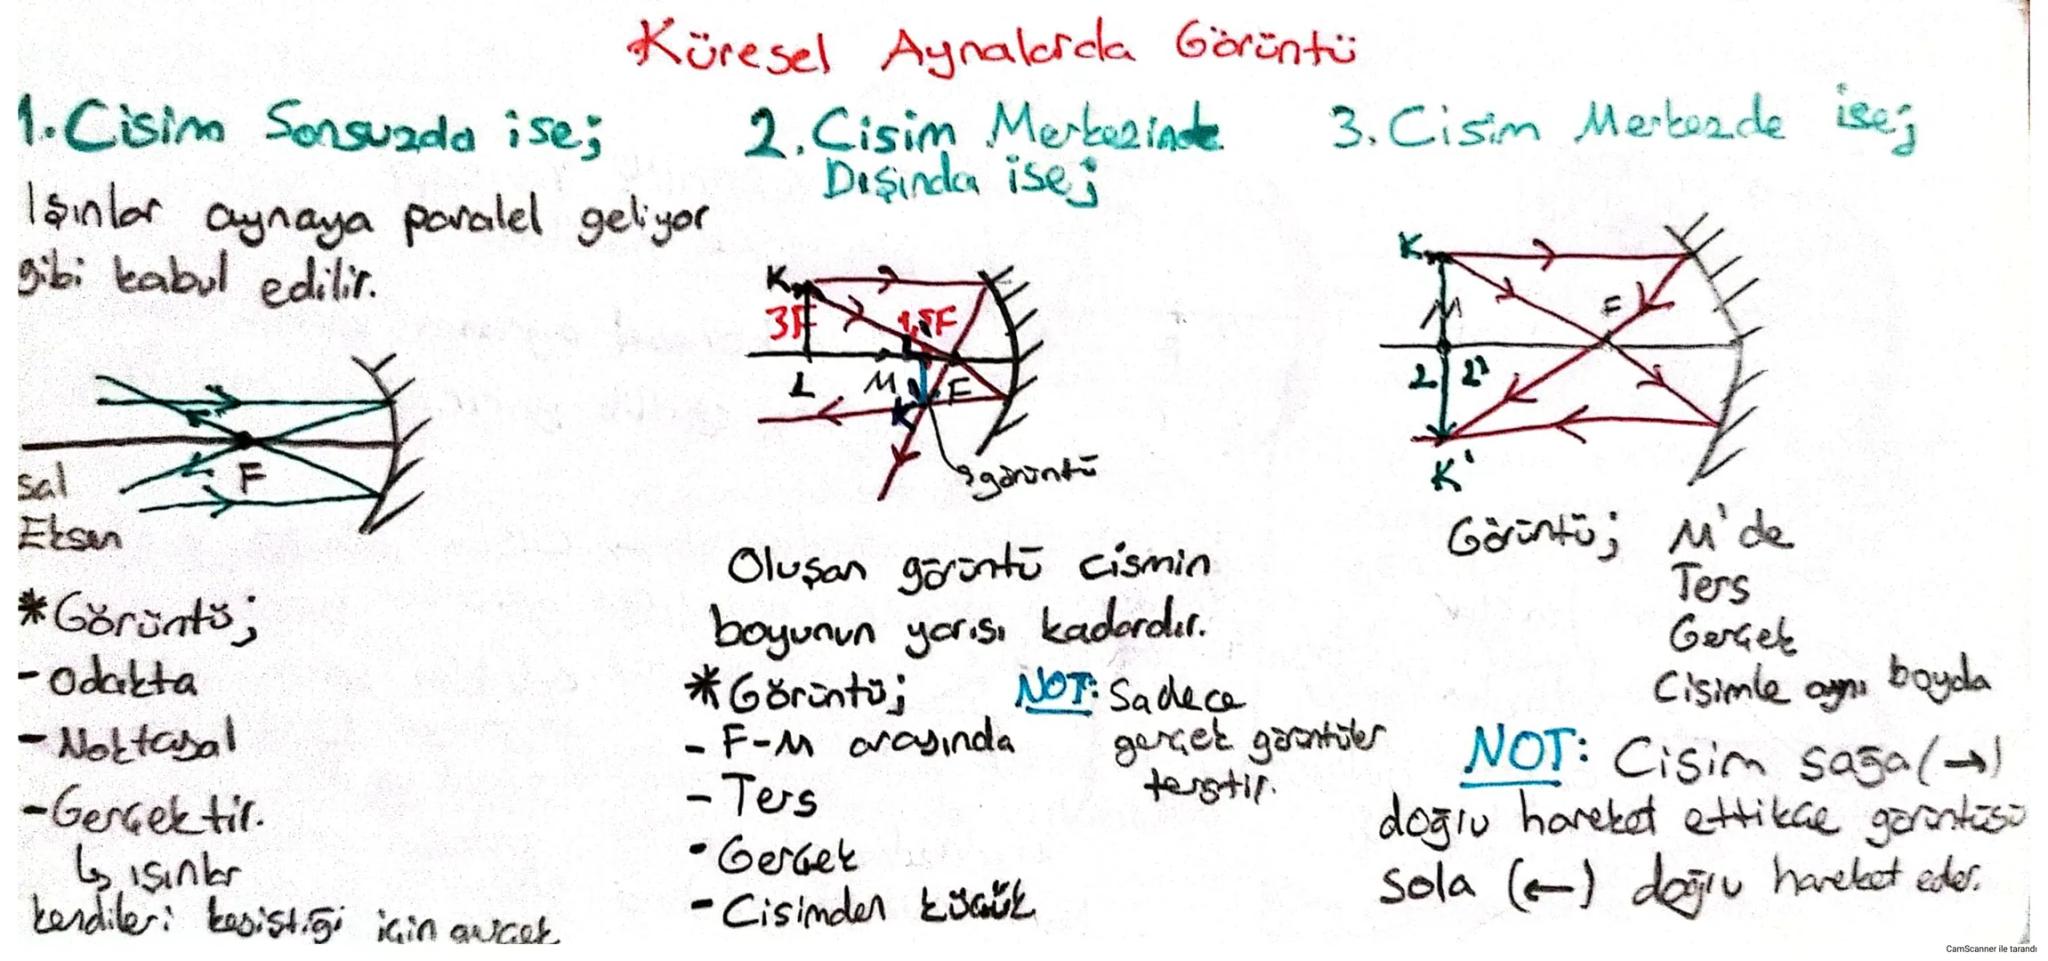 Küresel Aynalarda Görüntü
1. Cisim Sonsuzda ise;
Işınlar aynaya paralel geliyor
gibi kabul edilir.
F
sal
Eksen
*Görüntü;
- Odakta
- Noktasal
- Gerçektir.
↳ ışınlar
kendileri kesiştiği için gerçek
2. Cisim Merkezinde
Dışında ise;
K
3F
1,5F
L
M
F
K'
görüntü
Oluşan görüntü cismin
boyunun yarısı kadardır.
*Görüntü;
- F-M arasında
- Ters
- Gerçek
- Cisimden küçük
NOT: Sadece
gerçek görüntüler
terstir.
3. Cisim Merkezde ise;
K
M
F
L L'
K'
Görüntü; M'de
Ters
Gerçek
Cisimle aynı boyda
NOT: Cisim sağa (→)
doğru hareket ettikçe görüntüsü
sola (←) doğru hareket eder.
CamScanner ile tarandı